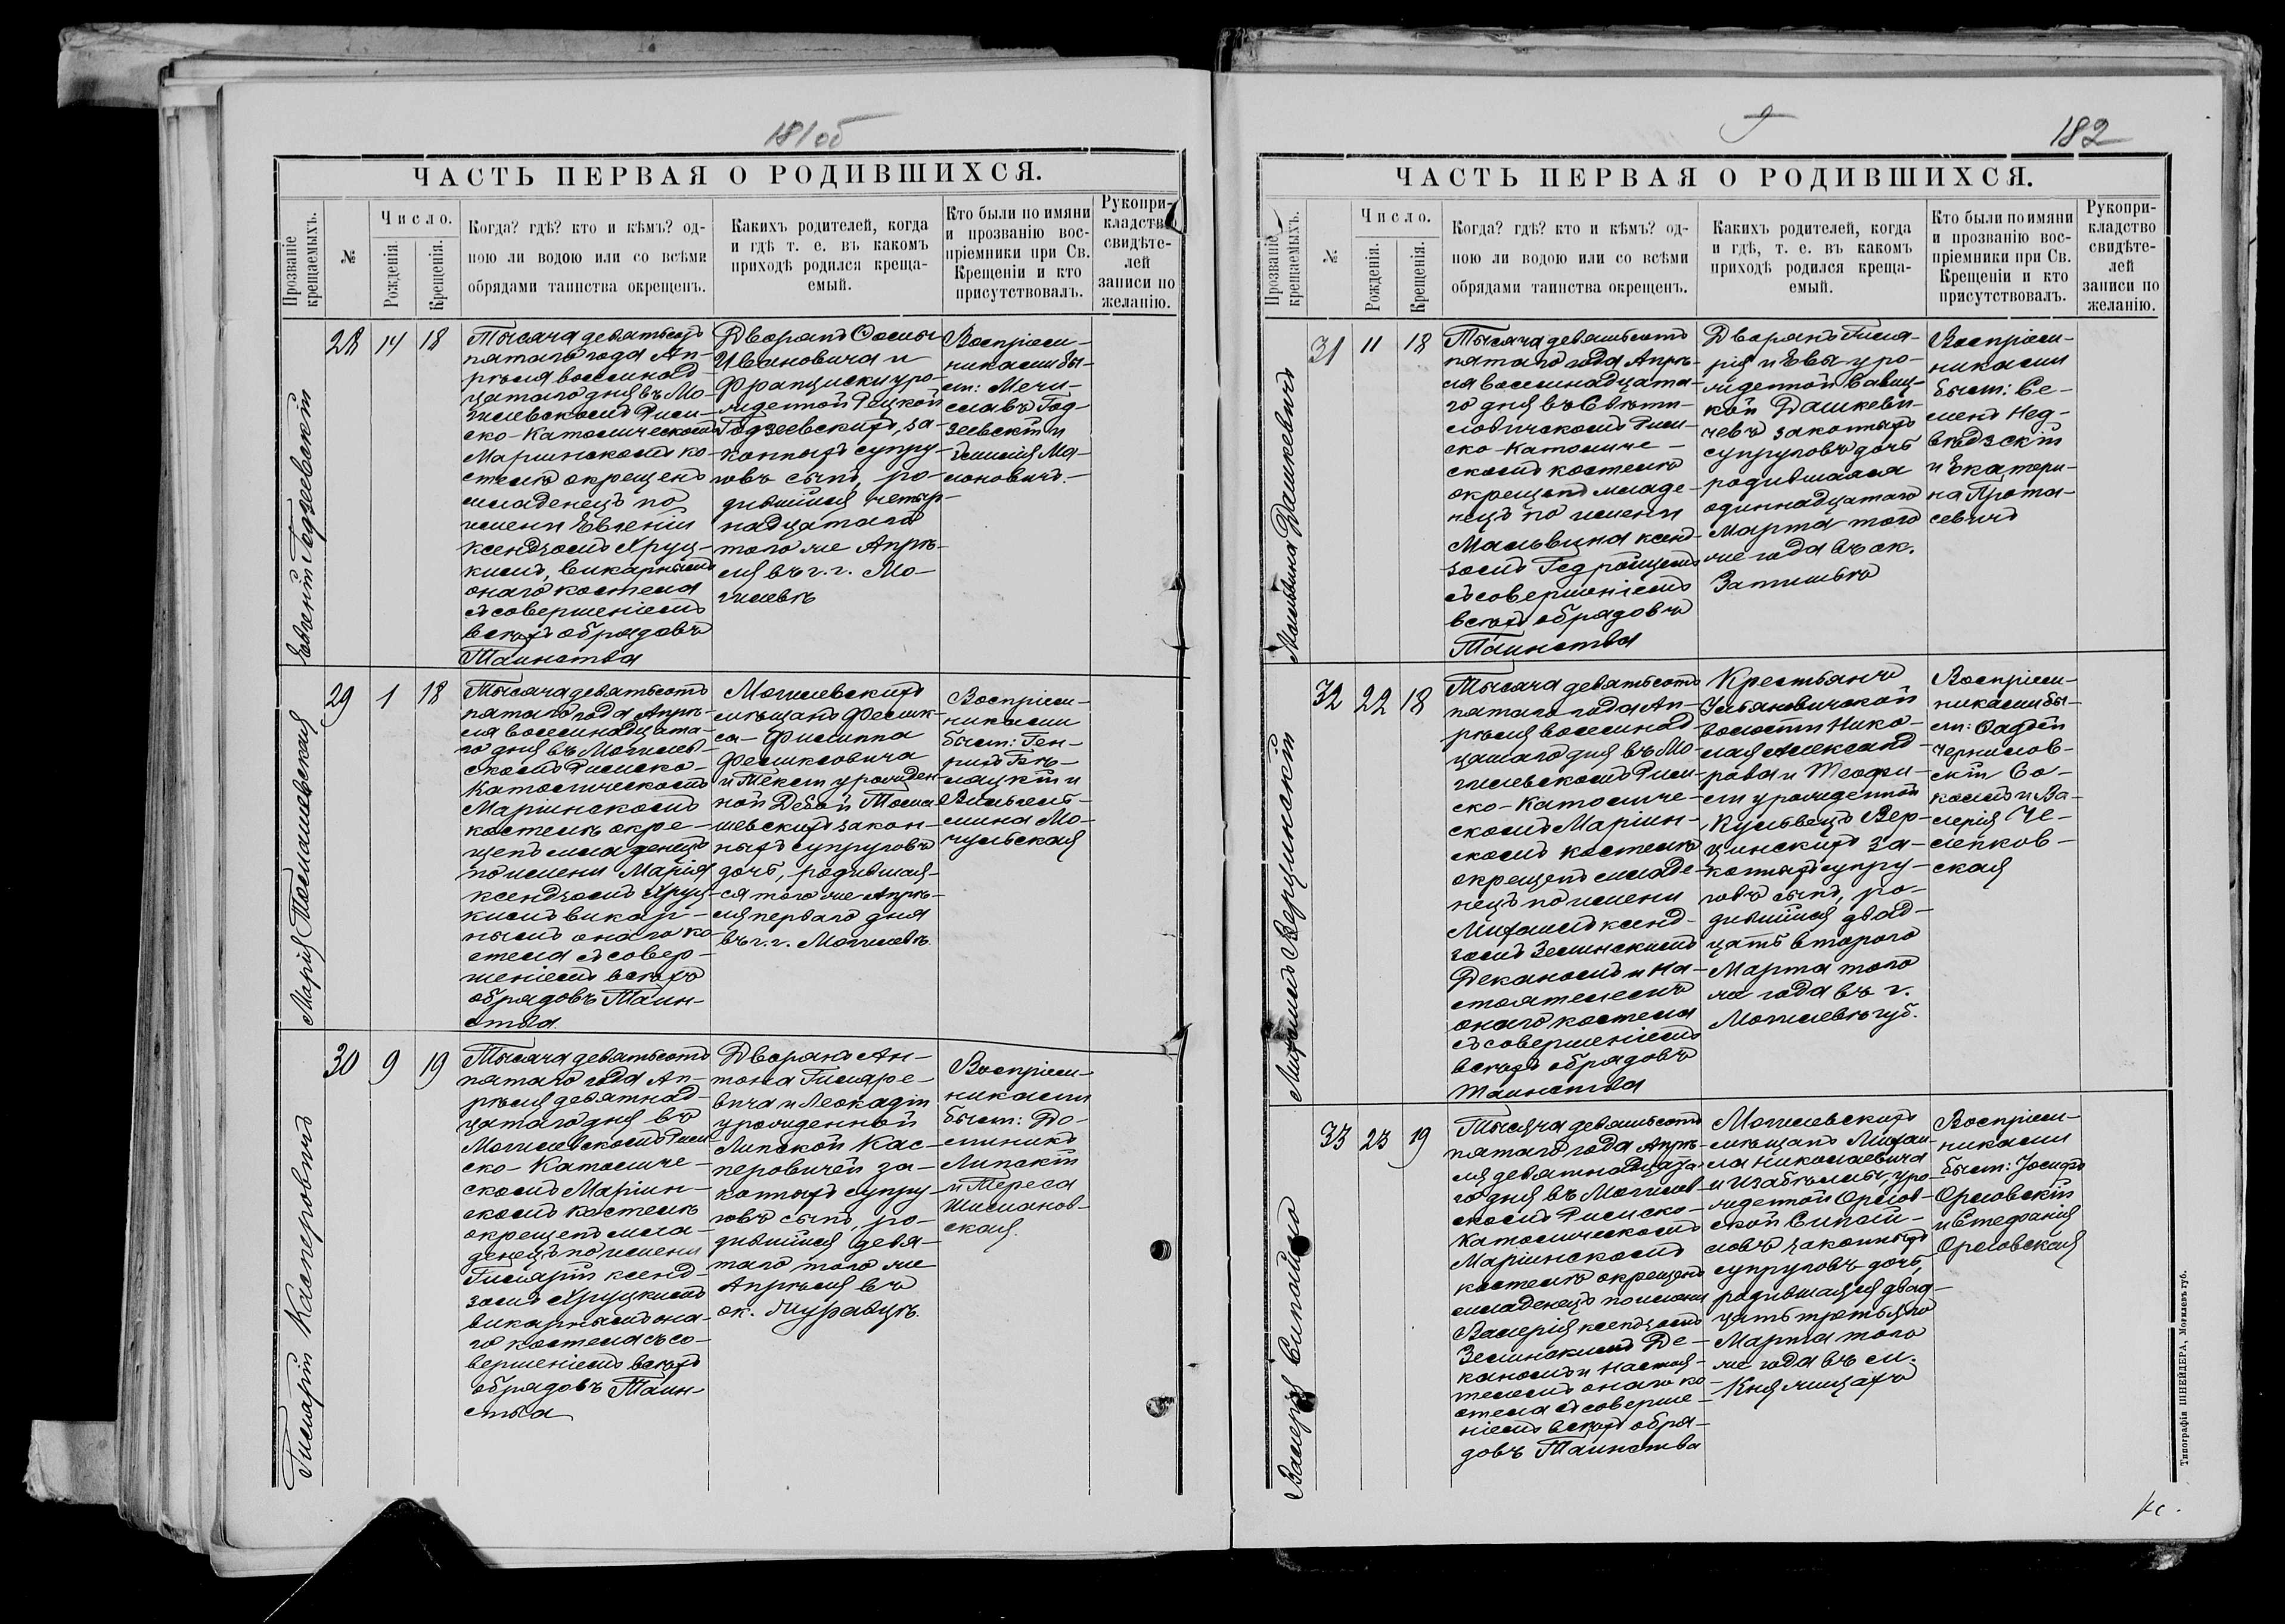 181 об
ЧАСТЬ ПЕРВАЯ О РОДИВШИХСЯ.
Прозваніе крещаемыхъ.
№
Число.
Рожденія.
Крещенія.
Когда? гдѣ? кто и кѣмъ? од-
ною ли водою или со всѣми
обрядами таинства окрещенъ.
Какихъ родителей, когда
и гдѣ т. е. въ какомъ
приходѣ родился креща-
емый.
Кто были по имяни
и прозванію вос-
пріемники при Св.
Крещеніи и кто
присутствовалъ.
Рукопри-
кладство
свидѣте-
лей
записи по
желанію.
Евгеній Годзеевскій
28
14
18
Тысяча девятьсотъ
пятаго года Ап-
рѣля восемнад-
цатаго дня въ Мо-
гилевскомъ Рим-
ско-Католическомъ
Маріинскомъ ко-
стелѣ окрещенъ
младенецъ по
имени Евгеній
ксендзомъ Хруц-
кимъ, викарнымъ
онаго костела
съ совершеніемъ
всѣхъ обрядовъ
Таинства
Дворянъ Осипа
Ивановича и
Франциски уро-
жденной Рецкой
Годзеевскихъ, за-
конныхъ супру-
говъ сынъ, ро-
дившійся четыр-
надцатаго
того же Апрѣ-
ля въ г. г. Мо-
гилевѣ
Воспріем-
никами бы-
ли: Мечи-
славъ Год-
зеевскій и
Эмилія Ма-
лоновичъ.
Марія Томашевская
29
1
18
Тысяча девятьсотъ
пятаго года Апрѣ-
ля восемнадцата-
го дня въ Могилев-
скомъ Римско-
Католическомъ
Маріинскомъ
костелѣ окре-
щенъ младенецъ
по имени Марія
ксендзомъ Хруц-
кимъ викар-
нымъ онаго ко-
стела съ совер-
шеніемъ всѣхъ
обрядовъ Таин-
ства.
Могилевскихъ
мѣщанъ Феликс-
са-Филиппа
Феликсовича
и Теклі урожден-
ной Дебой Тома-
шевскихъ закон-
ныхъ супруговъ
дочь, родившая-
ся того же Апрѣ-
ля перваго дня
въ г. г. Могилевѣ.
Воспріем-
никами
были: Ген-
рихъ
и
Вильгель-
мина Мо-
чульская
Гиларій Касперовичъ
30
9
19
Тысяча девятьсотъ
пятаго года Ап-
рѣля девятнад-
цатаго дня въ
Могилевскомъ Рим-
ско-Католиче-
скомъ Маріин-
скомъ костелѣ
окрещенъ мла-
денецъ по имени
Гиларій ксенд-
зомъ Хруцкимъ
викарнымъ она-
го костела съ со-
вершеніемъ всѣхъ
обрядовъ Таин-
ства
Дворянъ Ан-
тона Гиляре-
вича и Леокадіи
урожденной
Липской Кас-
перовичей за-
конныхъ супру-
говъ сынъ, ро-
дившійся девя-
таго того же
Апрѣля въ
ок. Журавцѣ.
Воспріем-
никами
были: До-
миникъ
Липскій
и Тереса
Шиманов-
ская.
9
182
ЧАСТЬ ПЕРВАЯ О РОДИВШИХСЯ.
Прозваніе крещаемыхъ.
№
Число.
Рожденія.
Крещенія.
Когда? гдѣ? кто и кѣмъ? од-
ною ли водою или со всѣми
обрядами таинства окрещенъ.
Какихъ родителей, когда
и гдѣ, т. е. въ какомъ
приходѣ родился креща-
емый.
Кто были по имяни
и прозванію вос-
пріемники при Св.
Крещеніи и кто
присутствовалъ.
Рукопри-
кладство
свидѣте-
лей
записи по
желанію.
Мальвина Дашкевичъ
31
11
18
Тысяча девятьсотъ
пятаго года Апрѣ-
ля восемнадцата-
го дня въ Свѣти-
ловичскомъ Рим-
ско-Католиче-
скомъ костелѣ
окрещенъ младе-
нецъ по имени
Мальвина ксенд-
зомъ Гедройцемъ
съ совершеніемъ
всѣхъ обрядовъ
Таинства
Дворянъ Гиля-
рія и Евы уро-
жденной Савиц-
кой Дашкеви-
чевъ законныхъ
супруговъ дочь
родившаяся
одиннадцатаго
Марта того
же года въ ок.
Затишьѣ
Воспріем-
никами
были: Се-
менъ Нед-
вѣдзскій
и Екатери-
на Прота-
севичъ
Михаилъ Верцинскій
32
22
18
Тысяча девятьсотъ
пятаго года Ап-
рѣля восемнад-
цатаго дня въ Мо-
гилевскомъ Рим-
ско-Католиче-
скомъ Маріин-
скомъ костелѣ
окрещенъ младе-
нецъ по имени
Михаилъ ксенд-
зомъ Зелинскимъ
Деканомъ и На-
стоятелемъ
онаго костела
съ совершеніемъ
всѣхъ обрядовъ
Таинства
Крестьянъ
Ульяновичской
волости Нико-
лая Александ-
рова и Теофи-
ли урожденной
Кульвецъ Вер-
цинскихъ за-
конныхъ супру-
говъ сынъ, ро-
дившійся двад-
цать второго
Марта того
же года въ г.
Могилевѣ губ.
Воспріем-
никами бы-
ли: Фаддей
Чернилов-
скій Со-
коломъ и Ва-
лерія Че-
лепков-
ская
Валерія Сипайло
33
23
19
Тысяча девятьсотъ
пятаго года Апрѣ-
ля девятнадцата-
го дня въ Могилев-
скомъ Римско-
Католическомъ
Маріинскомъ
костелѣ окрещенъ
младенецъ по имени
Валерія ксендзомъ
Зелинскимъ Де-
каномъ и Настоя-
телемъ онаго ко-
стела съ соверше-
ніемъ всѣхъ обря-
довъ Таинства
Могилевскихъ
мѣщанъ Михаи-
ла Николаевича
и Изабеллы, уро-
жденной Орлов-
ской Сипай-
ловъ законныхъ
супруговъ дочь,
родившаяся двад-
цать третьяго
Марта того
же года въ м.
Княжицахъ
Воспріем-
никами
были: Іосифъ
Орловскій
и Стефанія
Орловская
Типографія ШНЕЙДЕРА, Могилевъ губ.